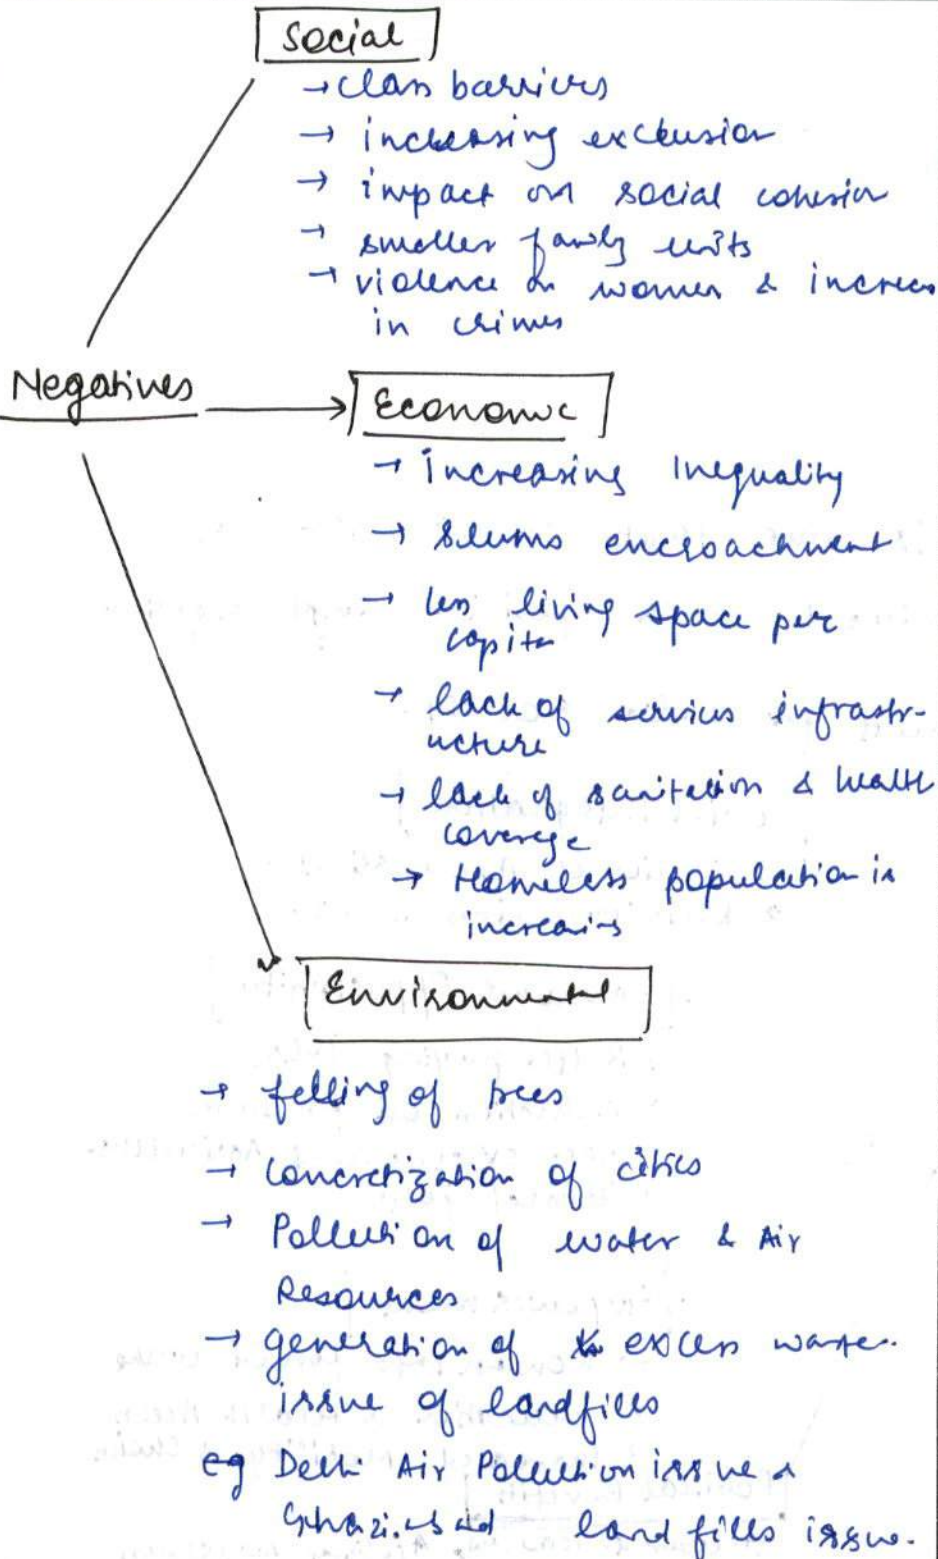 Social
→ class barriers
→ increasing exclusion
→ impact on social cohesion
→ smaller family units
→ violence on women & increas
in crimes
Negatives
Economic
→ Increasing Inequality
→ Slums encroachment
→ less living space per
capita
→ lack of services infrastr-
ucture
→ lack of sanitation & health
coverage
→ Homeless population is
increasing
Environmental
→ felling of trees
→ Concretization of cities
→ Pollution of water & Air
Resources
→ generation of excess waste.
issue of landfills
eg Delhi Air Pollution issue &
Ghaziabad land fills issue.